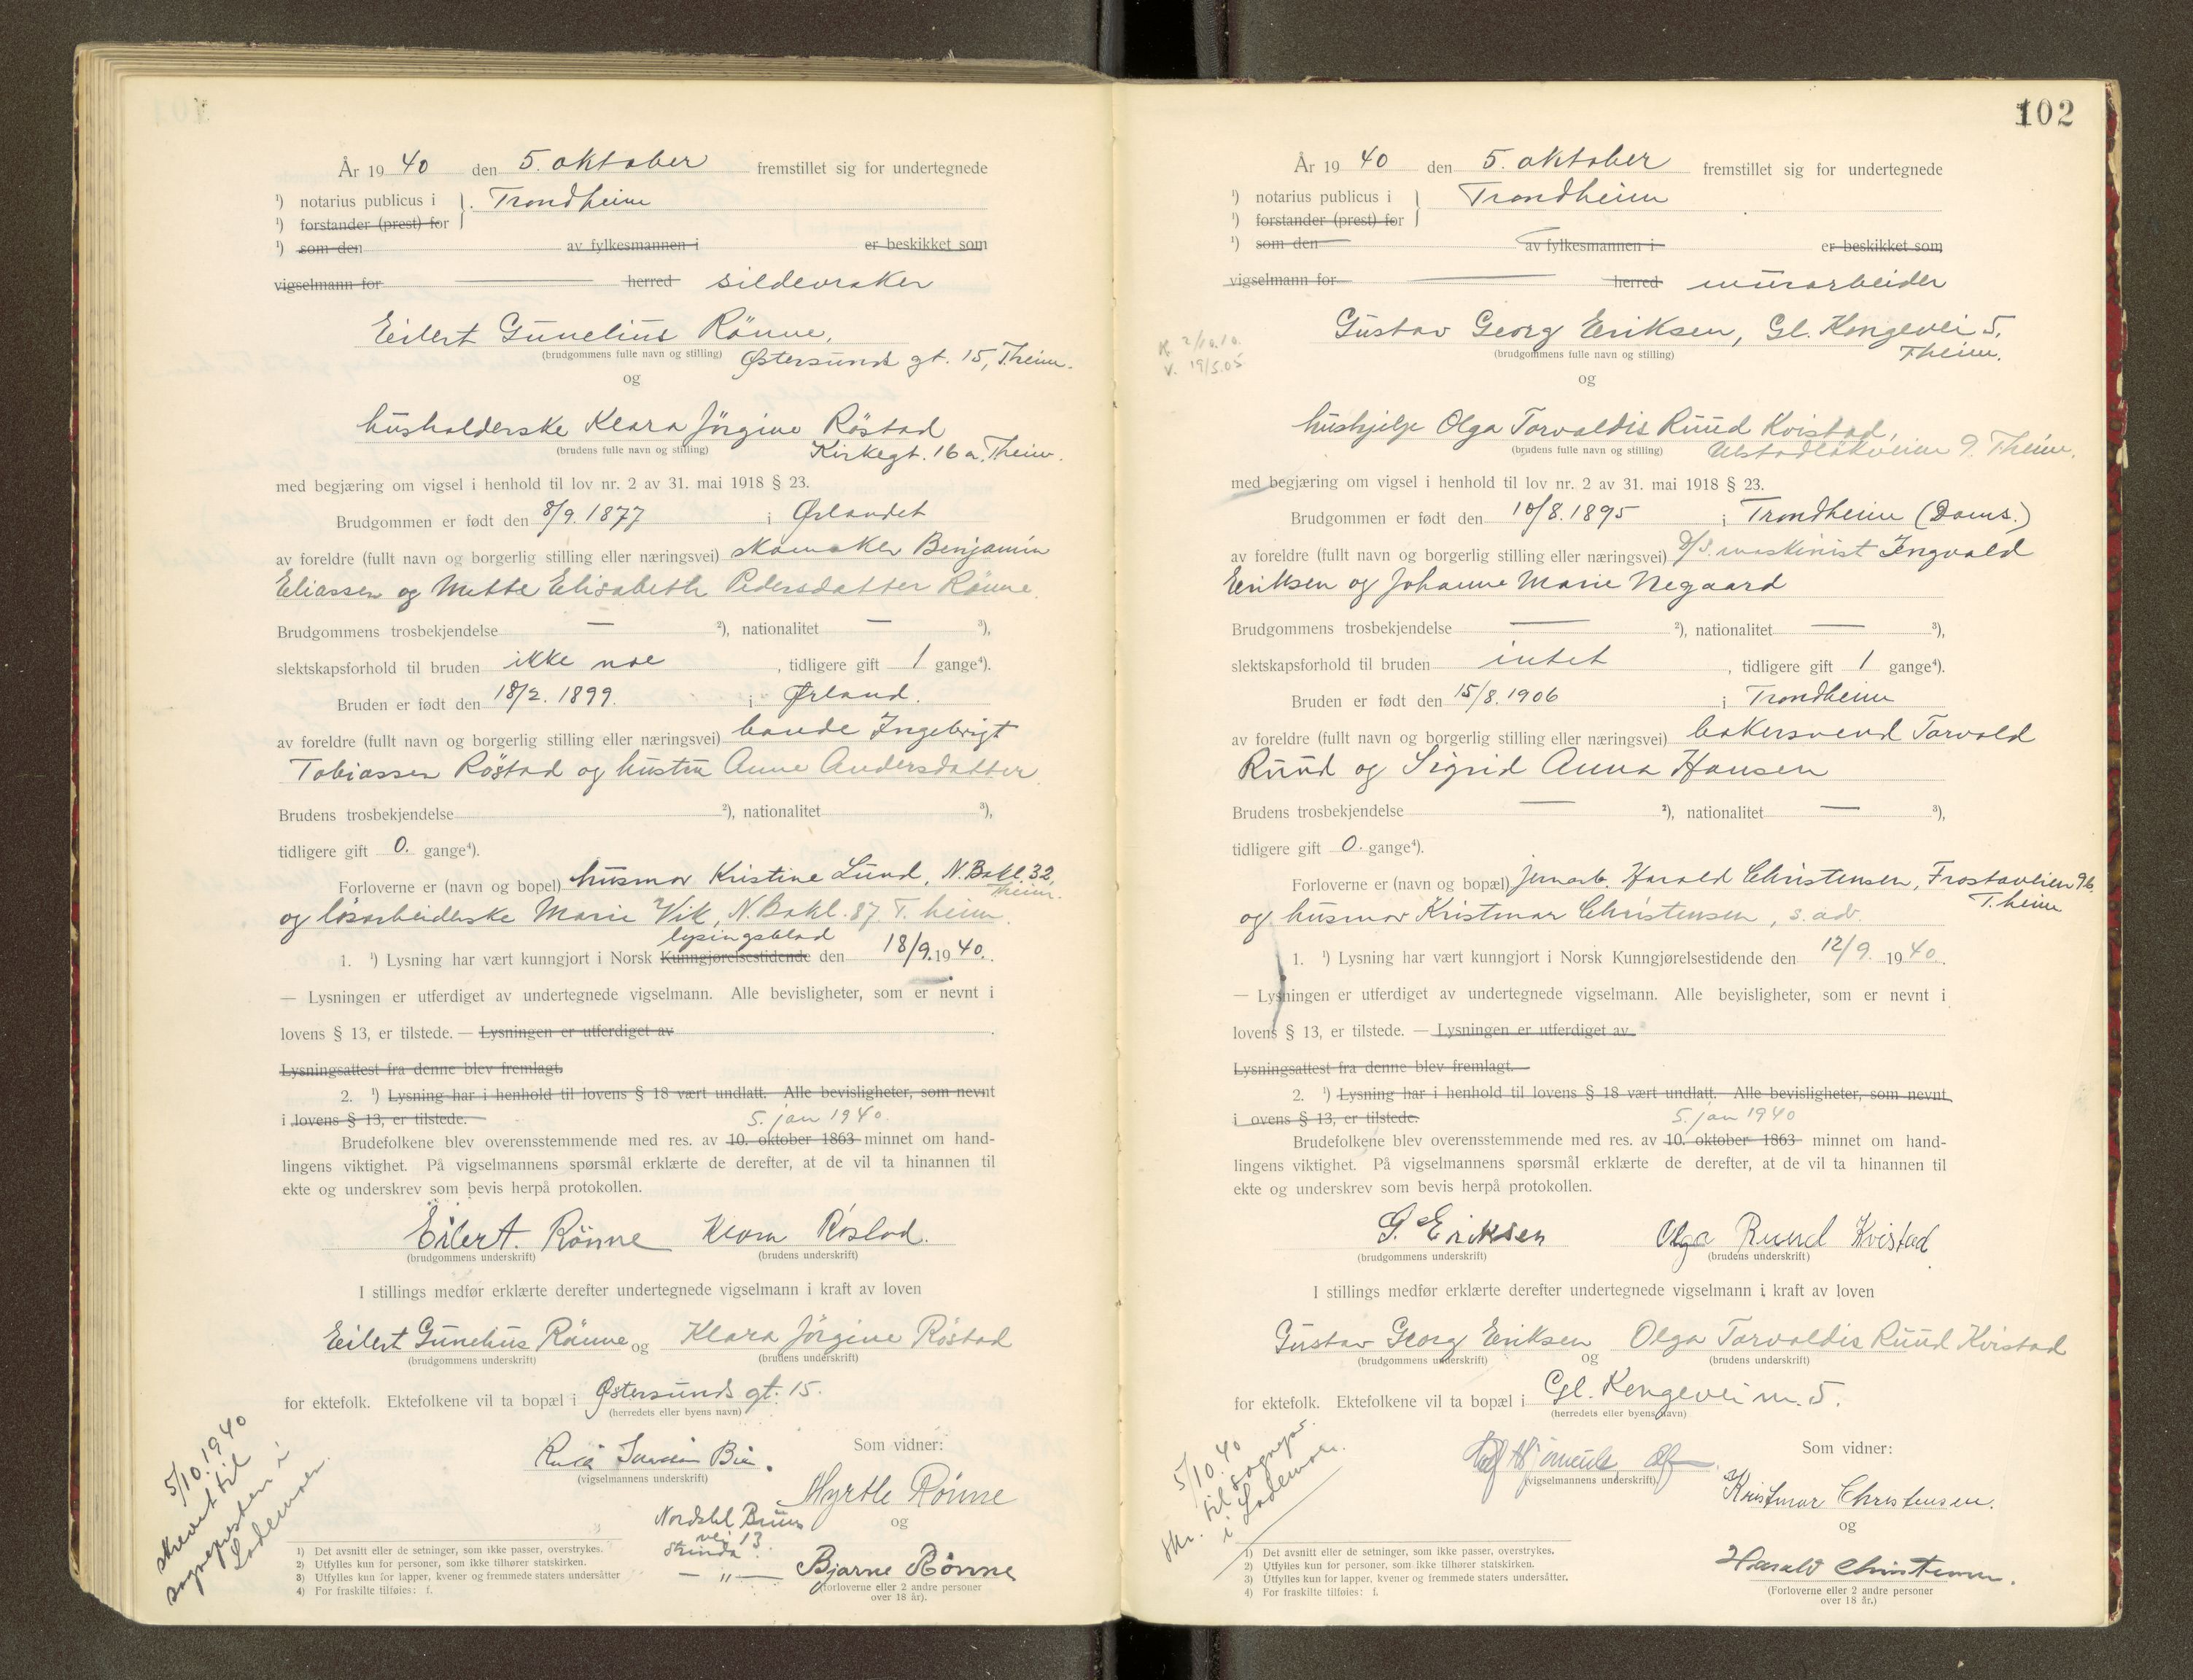 År 19 40 den 5. oktober fremstillet sig for undertegnede
¹) notarius publicus i } Trondheim
¹) forstander (prest) for
¹) som den av fylkesmannen i er beskikket som
vigselmann for herred sildevraker
Eilert Gunelius Rönne,
(brudgommens fulle navn og stilling) Østersunds gt. 15, T.heim.
og
husholderske Klara Jörgine Röstad
(brudens fulle navn og stilling) Kirkegt. 16 a. T.heim.
med begjæring om vigsel i henhold til lov nr. 2 av 31. mai 1918 § 23.
Brudgommen er født den 8/9. 1877 i Ørlandet
av foreldre (fullt navn og borgerlig stilling eller næringsvei) skomaker Benjamin
Eliassen og Mette Elisabeth Pedersdatter Rönne.
Brudgommens trosbekjendelse — ²), nationalitet — ³),
slektskapsforhold til bruden ikke noe, tidligere gift 1 gange⁴).
Bruden er født den 18/2. 1899. i Ørland.
av foreldre (fullt navn og borgerlig stilling eller næringsvei) bonde Ingebrigt
Tobiassen Röstad og hustru Anne Andersdatter
Brudens trosbekjendelse ²), nationalitet ³),
tidligere gift 0. gange⁴).
Forloverne er (navn og bopel) husmor Kristine Lund, N. Bakl. 32
T.heim.
og lösarbeiderske Marie Vik, N. Bakl. 87, T.heim.
lysingsblad
1. ¹) Lysning har vært kunngjort i Norsk Kunngjørelsestidende den 18/9. 19 40.
— Lysningen er utferdiget av undertegnede vigselmann. Alle bevisligheter, som er nevnt i
lovens § 13, er tilstede. — Lysningen er utferdiget av
Lysningsattest fra denne blev fremlagt.
2. ¹) Lysning har i henhold til lovens § 18 vært undlatt. Alle bevisligheter, som nevnt
i lovens § 13, er tilstede. 5. jan 1940.
Brudefolkene blev overensstemmende med res. av 10. oktober 1863 minnet om hand-
lingens viktighet. På vigselmannens spørsmål erklærte de derefter, at de vil ta hinannen til
ekte og underskrev som bevis herpå protokollen.
Eilert. Rönne Klara Röstad.
(brudgommens underskrift) (brudens underskrift)
I stillings medfør erklærte derefter undertegnede vigselmann i kraft av loven
Eilert Gunelius Rönne og Klara Jörgine Röstad
(brudgommens underskrift) (brudens underskrift)
for ektefolk. Ektefolkene vil ta bopæl i Østersunds gt. 15.
(herredets eller byens navn)
Som vidner:
(vigselmannens underskrift)
Myrtle Rönne
Nordahl Bruns
vei 13
Strinda. og
— " — Bjarne Rönne
(forloverne eller 2 andre personer
over 18 år).
5/10. 1940
skrevet til
sognepresten i
Lademoen.
1) Det avsnitt eller de setninger, som ikke passer, overstrykes.
2) Utfylles kun for personer, som ikke tilhører statskirken.
3) Utfylles kun for lapper, kvener og fremmede staters undersåtter
4) For fraskilte tilføies: f.
102
År 19 40 den 5. oktober fremstillet sig for undertegnede
¹) notarius publicus i } Trondheim
¹) forstander (prest) for
¹) som den av fylkesmannen i er beskikket som
vigselmann for herred murarbeider
Gustav Georg Eriksen, Gl. Kongevei 5.
(brudgommens fulle navn og stilling) T.heim.
2/10.10.
v. 19/5.05
og
hushjelp Olga Torvaldis Ruud Kvistad,
(brudens fulle navn og stilling) Ulstadløkveien 9. T.heim.
med begjæring om vigsel i henhold til lov nr. 2 av 31. mai 1918 § 23.
Brudgommen er født den 10/8. 1895 i Trondheim (Doms.)
av foreldre (fullt navn og borgerlig stilling eller næringsvei) D/S. maskinist Ingvald
Eriksen og Johanne Marie Negaard
Brudgommens trosbekjendelse — ²), nationalitet — ³),
slektskapsforhold til bruden intet, tidligere gift 1 gange⁴).
Bruden er født den 15/8. 1906 i Trondheim
av foreldre (fullt navn og borgerlig stilling eller næringsvei) bakersvend Torvald
Ruud og Sigrid Anna Hansen
Brudens trosbekjendelse — ²), nationalitet — ³),
tidligere gift 0. gange⁴).
Forloverne er (navn og bopæl) jernarb. Harald Christensen, Frostaveien 9b,
T.heim
og husmor Kristmar Christensen, s. adr.
1. ¹) Lysning har vært kunngjort i Norsk Kunngjørelsestidende den 12/9. 19 40.
— Lysningen er utferdiget av undertegnede vigselmann. Alle bevisligheter, som er nevnt i
lovens § 13, er tilstede. — Lysningen er utferdiget av
Lysningsattest fra denne blev fremlagt.
2. ¹) Lysning har i henhold til lovens § 18 vært undlatt. Alle bevisligheter, som nevnt
i ovens § 13, er tilstede. 5. jan 1940
Brudefolkene blev overensstemmende med res. av 10. oktober 1863 minnet om hand-
lingens viktighet. På vigselmannens spørsmål erklærte de derefter, at de vil ta hinannen til
ekte og underskrev som bevis herpå protokollen.
G. Eriksen Olga Ruud Kvistad
(brudgommens underskrift) (brudens underskrift)
I stillings medfør erklærte derefter undertegnede vigselmann i kraft av loven
Gustav Georg Eriksen og Olga Torvaldis Ruud Kvistad
(brudgommens underskrift) (brudens underskrift)
for ektefolk. Ektefolkene vil ta bopæl i Gl. Kongevei nr. 5.
(herredets eller byens navn)
Som vidner:
(vigselmannens underskrift)
Kristmar Christensen.
og
Harald Christensen.
(Forloverne eller 2 andre personer
over 18 år.)
5/10. 40
skr. til sognepr.
i Lademoen.
1) Det avsnitt eller de setninger, som ikke passer, overstrykes,
2) Utfylles kun for personer, som ikke tilhører statskirken.
3) Utfylles kun for lapper, kvener og fremmede staters undersåtter.
4) For fraskilte tilføies: f.